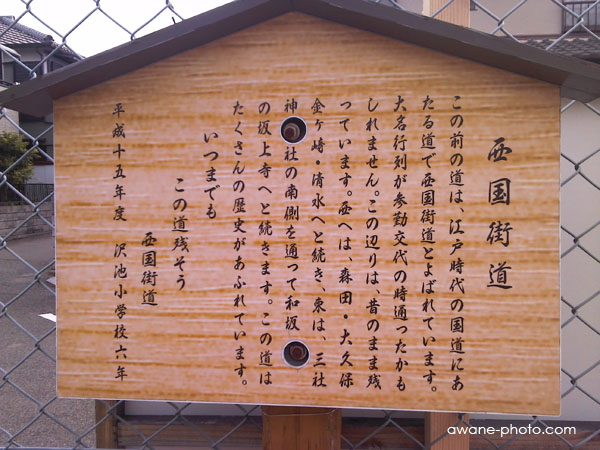 西国街道
この前の道は、江戸時代の国道にあ
たる道で西国街道とよばれています。
大名行列が参勤交代の時通ったかも
しれません。この辺りは、昔のまま残
っています。西へは、森田・大久保
金ヶ崎・清水へと続き、東は、三社
神社の南側を通って和坂
の坂上寺へと続きます。この道は
たくさんの歴史があふれています。
いつまでも
この道残そう
西国街道
平成十五年度 沢池小学校六年
awane-photo.com